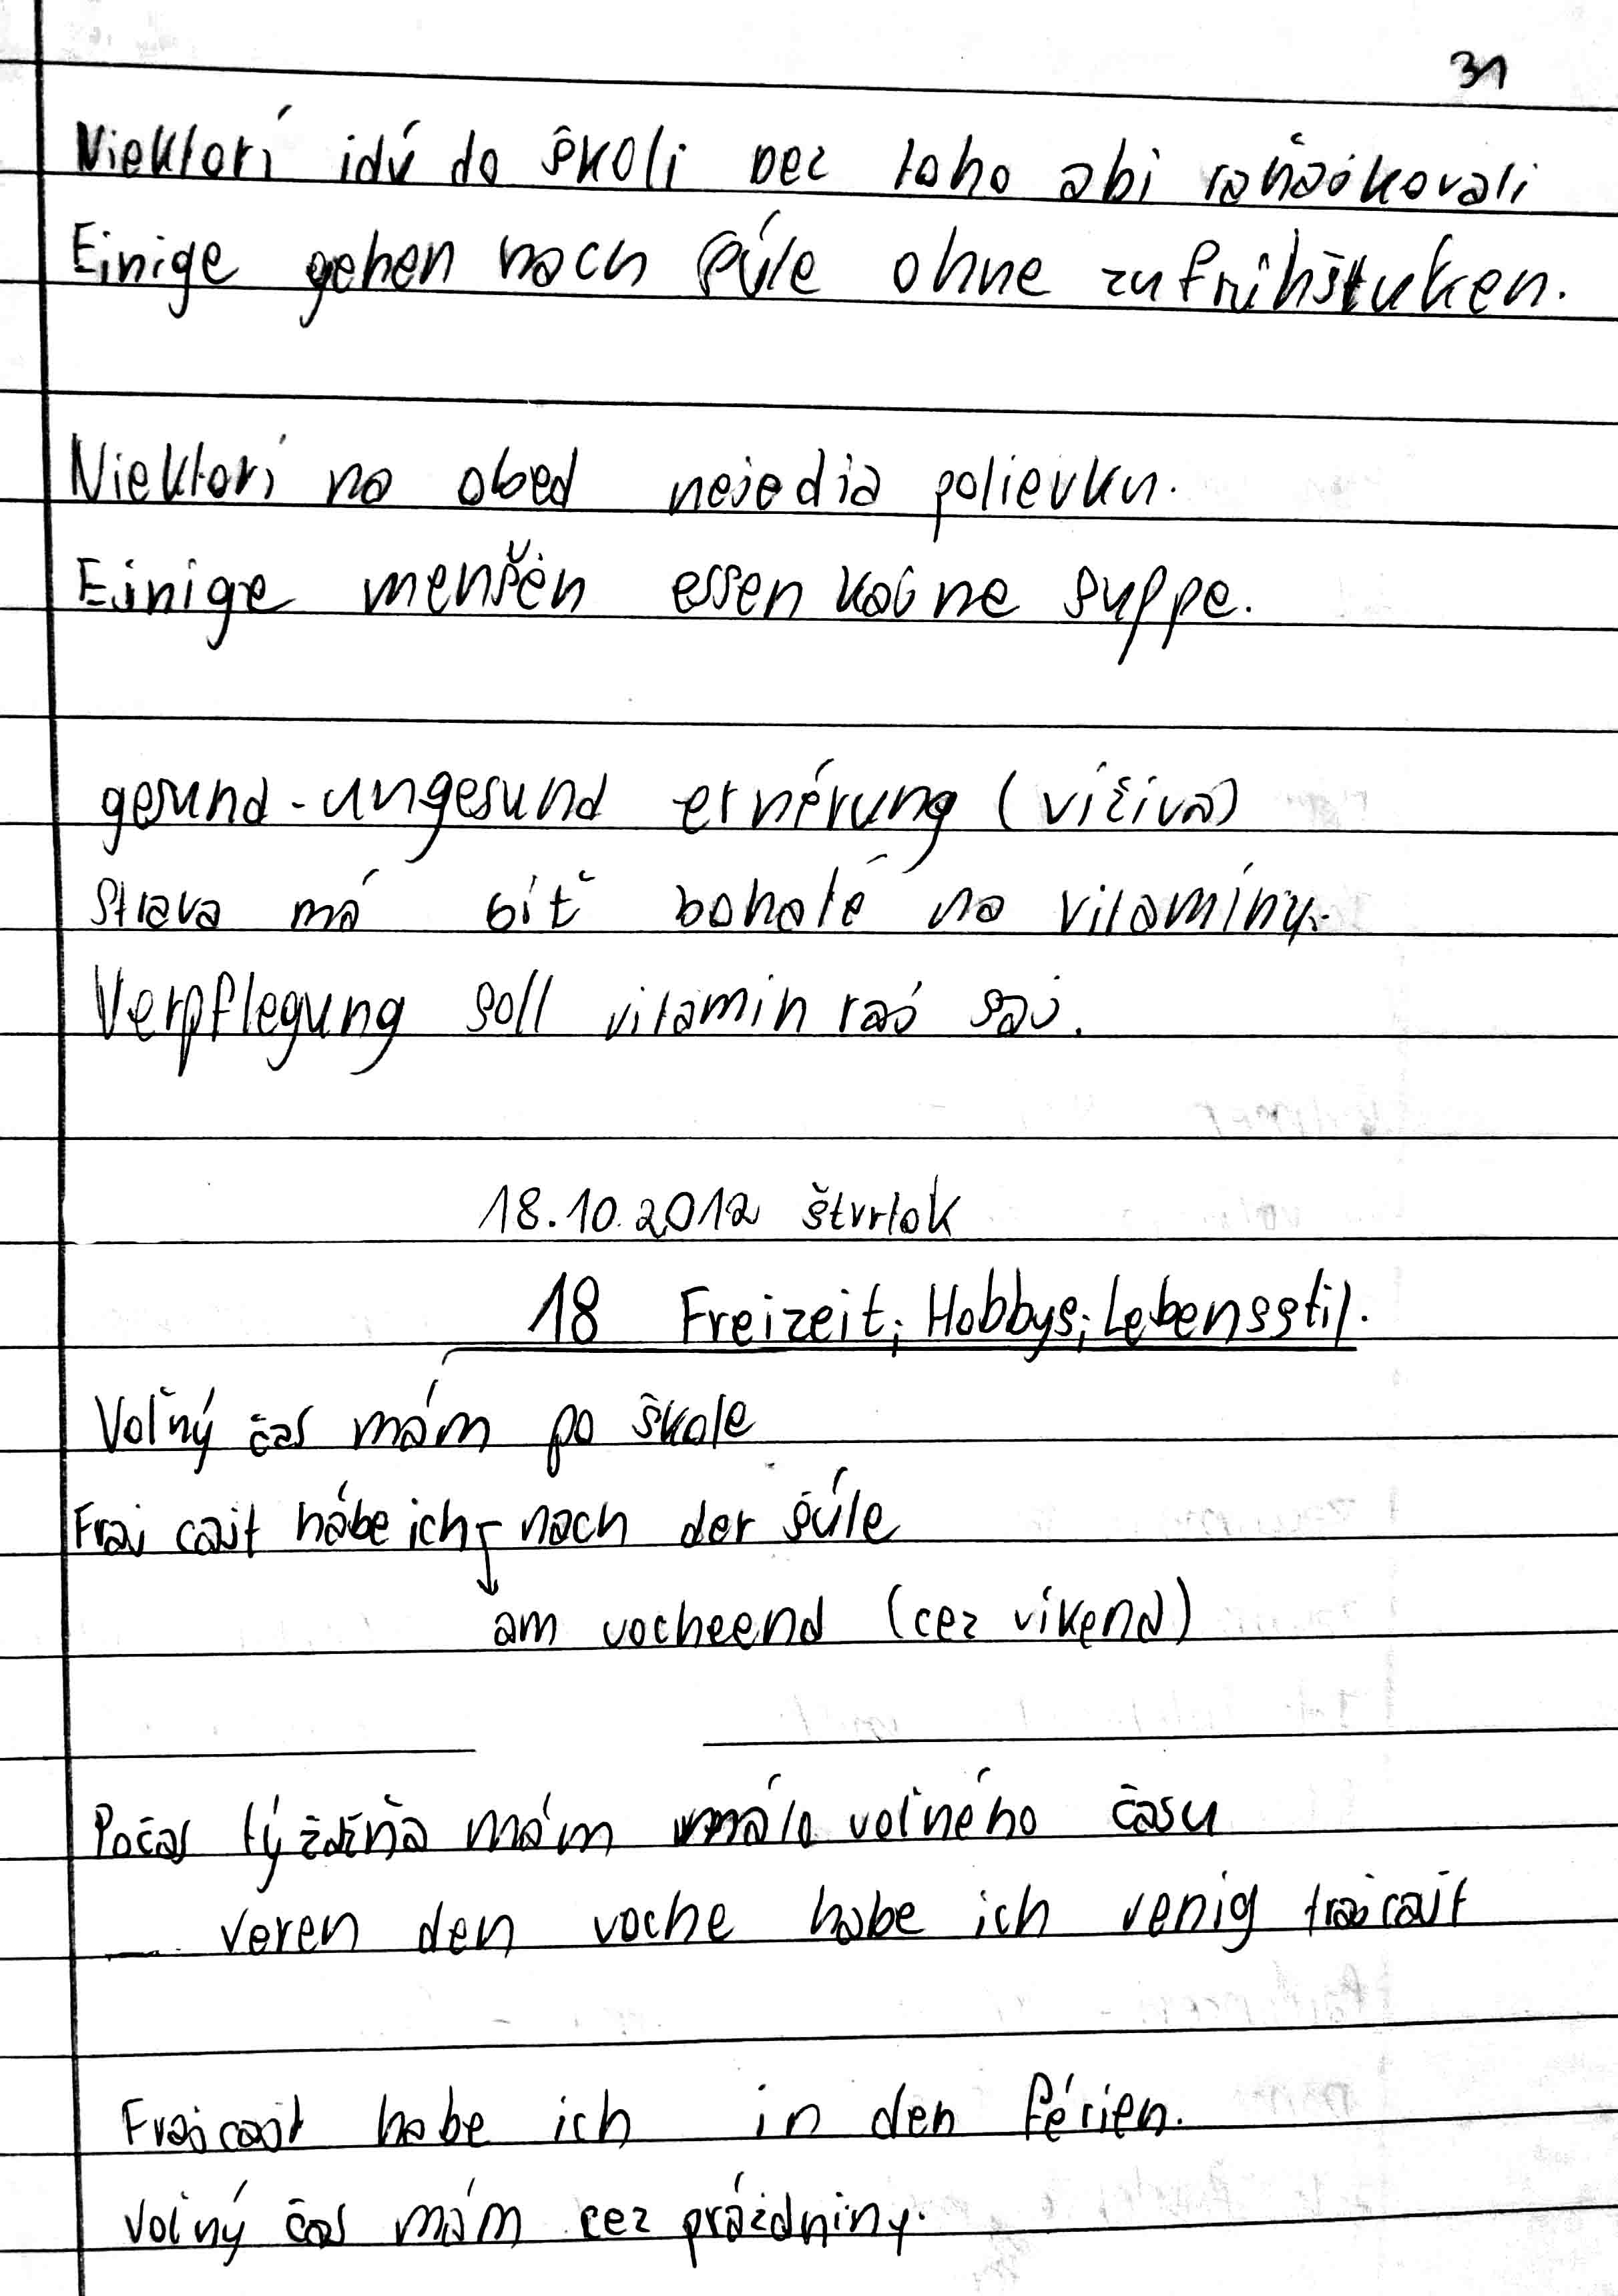 31
Niektorí idú do školi bez toho abi raňajkovali
Einige gehen nach šúle ohne zu frühštuken.
Niektorí na obed nejedia polievku.
Einige menšen essen kajne suppe.
gesund - ungesund ernérung (víživa)
Strava má bíť bohaté na vitamíny.
Verpflegung soll vitamin rajš saj.
18.10.2012 štvrtok
18 Freizeit; Hobbys; Lebensstil.
Voľný čas mám po škole
Fraj cajt hábe ich nach der šúle
am vocheend (cez víkend)
Počas týždňa mám málo voľného času
veren den voche habe ich venig frajcajt
Frajcajt habe ich in den férien.
Voľný čas mám cez prázdniny.